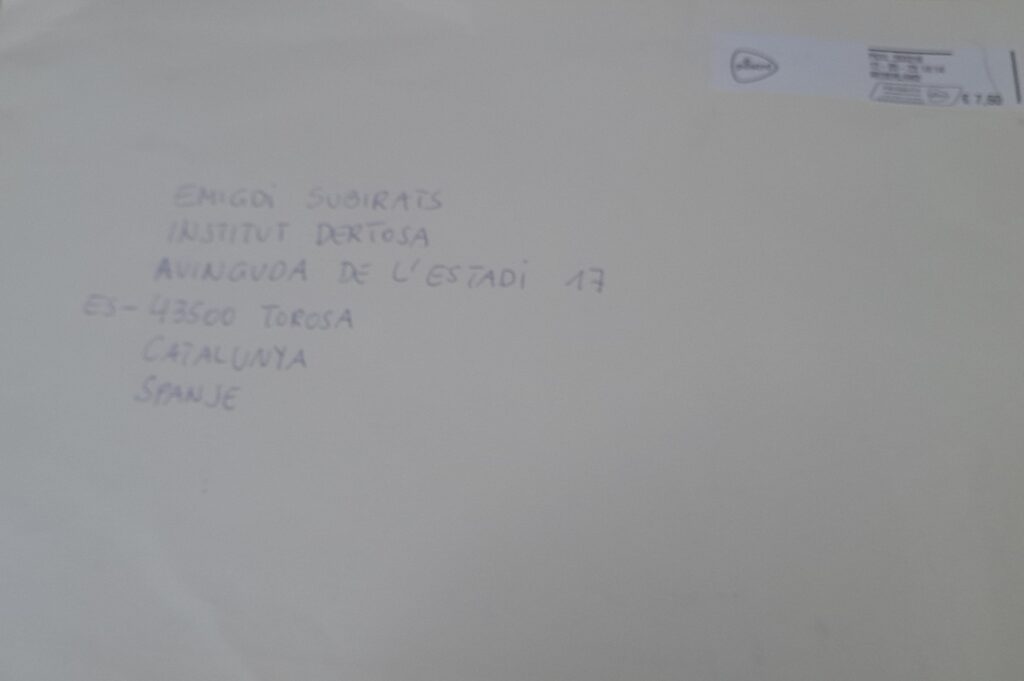 EMIGDI SUBIRATS
INSTITUT DERTOSA
AVINGUDA DE L'ESTADI 17
ES-43500 TOROSA
CATALUNYA
SPANJE
€ 7,50